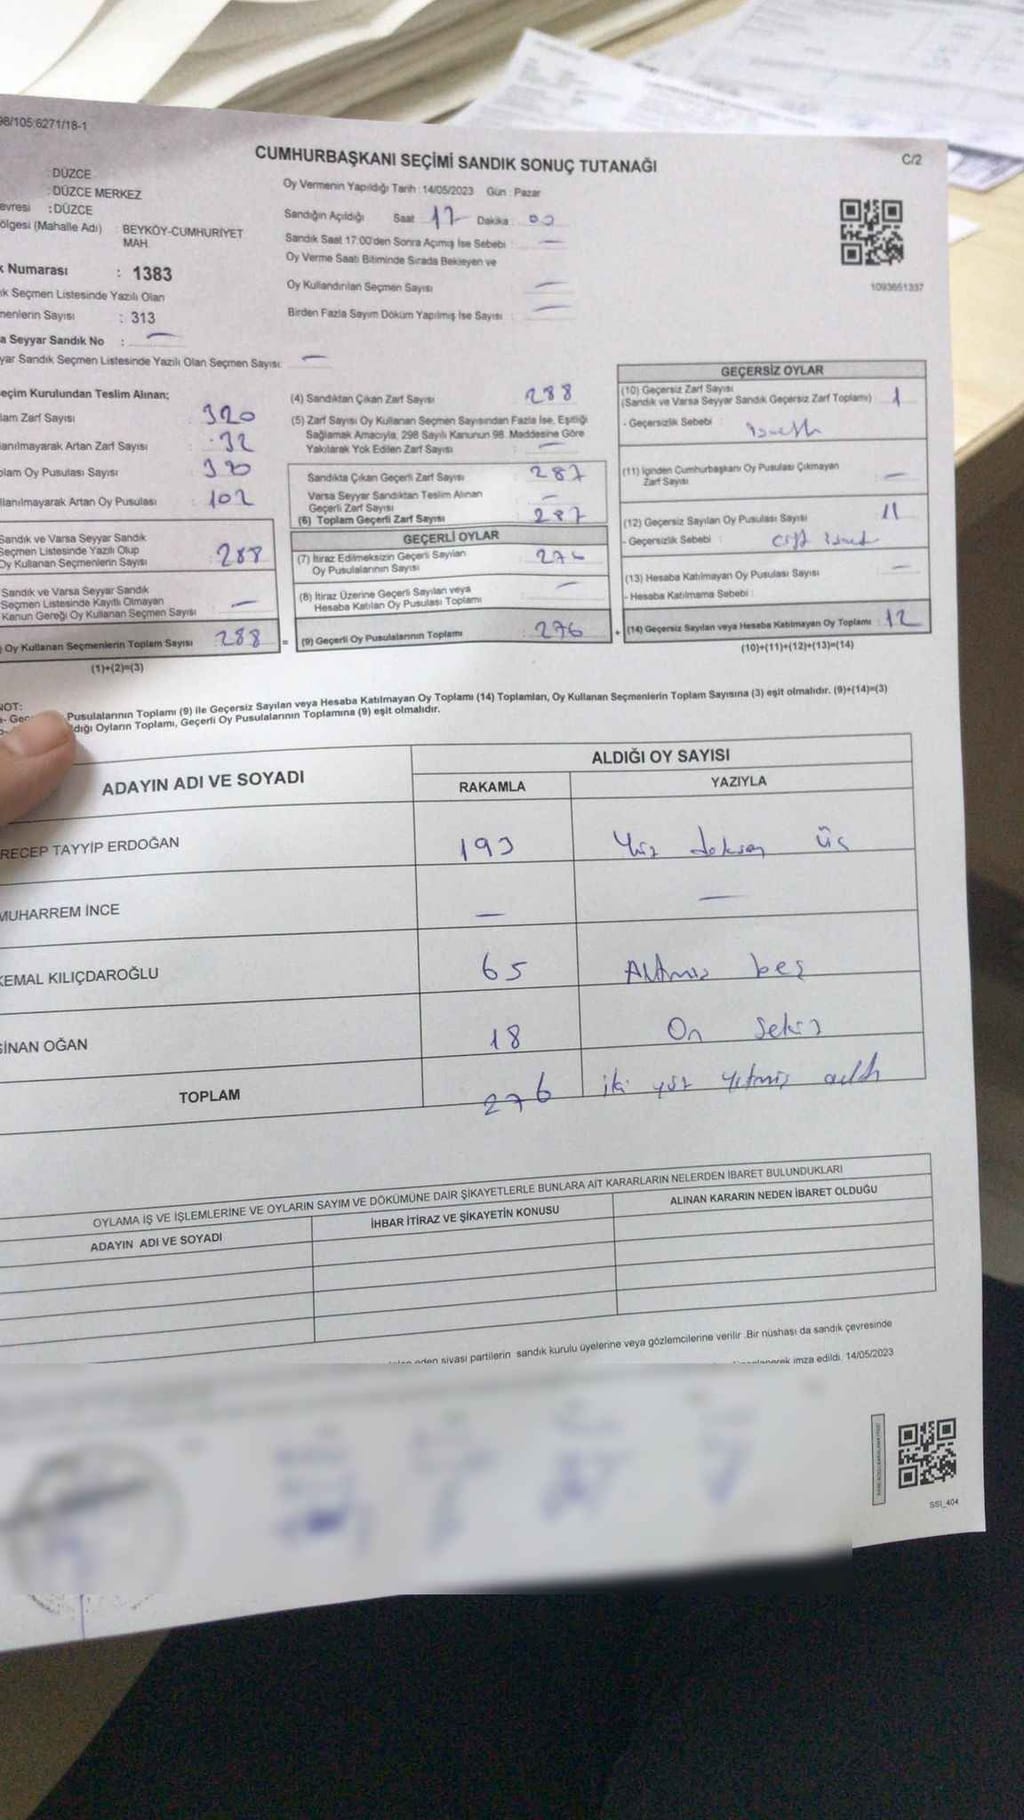 98/105:6271/18-1
C/2
CUMHURBAŞKANI SEÇİMİ SANDIK SONUÇ TUTANAĞI
: DÜZCE
: DÜZCE MERKEZ
evresi : DÜZCE
ölgesi (Mahalle Adı) : BEYKÖY-CUMHURİYET
MAH.
k Numarası : 1383
ık Seçmen Listesinde Yazılı Olan
menlerin Sayısı : 313
a Seyyar Sandık No : —
yar Sandık Seçmen Listesinde Yazılı Olan Seçmen Sayısı: —
Oy Vermenin Yapıldığı Tarih : 14/05/2023 Gün : Pazar
Sandığın Açıldığı Saat 17 Dakika : 00
Sandık Saat 17:00'den Sonra Açılmış İse Sebebi : —
Oy Verme Saati Bitiminde Sırada Bekleyen ve
Oy Kullandırılan Seçmen Sayısı : —
Birden Fazla Sayım Döküm Yapılmış İse Sayısı : —
1093651337
eçim Kurulundan Teslim Alınan;
lam Zarf Sayısı : 320
lanılmayarak Artan Zarf Sayısı : 32
plam Oy Pusulası Sayısı
llanılmayarak Artan Oy Pusulası : 102
Sandık ve Varsa Seyyar Sandık
Seçmen Listesinde Yazılı Olup
Oy Kullanan Seçmenlerin Sayısı : 288
Sandık ve Varsa Seyyar Sandık
Seçmen Listesinde Kayıtlı Olmayan
Kanun Gereği Oy Kullanan Seçmen Sayısı : —
Oy Kullanan Seçmenlerin Toplam Sayısı : 288 =
(1)+(2)=(3)
(4) Sandıktan Çıkan Zarf Sayısı : 288
(5) Zarf Sayısı Oy Kullanan Seçmen Sayısından Fazla İse, Eşitliği
Sağlamak Amacıyla, 298 Sayılı Kanunun 98. Maddesine Göre
Yakılarak Yok Edilen Zarf Sayısı : —
Sandıkta Çıkan Geçerli Zarf Sayısı : 287
Varsa Seyyar Sandıktan Teslim Alınan
Geçerli Zarf Sayısı : —
(6) Toplam Geçerli Zarf Sayısı : 287
GEÇERLİ OYLAR
(7) İtiraz Edilmeksizin Geçerli Sayılan
Oy Pusulalarının Sayısı : 276
(8) İtiraz Üzerine Geçerli Sayılan veya
Hesaba Katılan Oy Pusulası Toplamı : —
(9) Geçerli Oy Pusulalarının Toplamı : 276 +
GEÇERSİZ OYLAR
(10) Geçersiz Zarf Sayısı
(Sandık ve Varsa Seyyar Sandık Geçersiz Zarf Toplamı) : 1
- Geçersizlik Sebebi :
(11) İçinden Cumhurbaşkanı Oy Pusulası Çıkmayan
Zarf Sayısı : —
(12) Geçersiz Sayılan Oy Pusulası Sayısı : 11
- Geçersizlik Sebebi :
(13) Hesaba Katılmayan Oy Pusulası Sayısı : —
- Hesaba Katılmama Sebebi :
(14) Geçersiz Sayılan veya Hesaba Katılmayan Oy Toplamı : 12
(10)+(11)+(12)+(13)=(14)
NOT:
Pusulalarının Toplamı (9) ile Geçersiz Sayılan veya Hesaba Katılmayan Oy Toplamı (14) Toplamları, Oy Kullanan Seçmenlerin Toplam Sayısına (3) eşit olmalıdır. (9)+(14)=(3)
dığı Oyların Toplamı, Geçerli Oy Pusulalarının Toplamına (9) eşit olmalıdır.
ADAYIN ADI VE SOYADI ALDIĞI OY SAYISI
RAKAMLA YAZIYLA
RECEP TAYYİP ERDOĞAN 193 Yüz doksan üç
MUHARREM İNCE — —
KEMAL KILIÇDAROĞLU 65 Altmış beş
SİNAN OĞAN 18 On Sekiz
TOPLAM 276 iki yüz yetmiş altı
OYLAMA İŞ VE İŞLEMLERİNE VE OYLARIN SAYIM VE DÖKÜMÜNE DAİR ŞİKAYETLERLE BUNLARA AİT KARARLARIN NELERDEN İBARET BULUNDUKLARI
ADAYIN ADI VE SOYADI İHBAR İTİRAZ VE ŞİKAYETİN KONUSU ALINAN KARARIN NEDEN İBARET OLDUĞU
eden siyasi partilerin sandık kurulu üyelerine veya gözlemcilerine verilir .Bir nüshası da sandık çevresinde
imza edildi. 14/05/2023
SSI_404